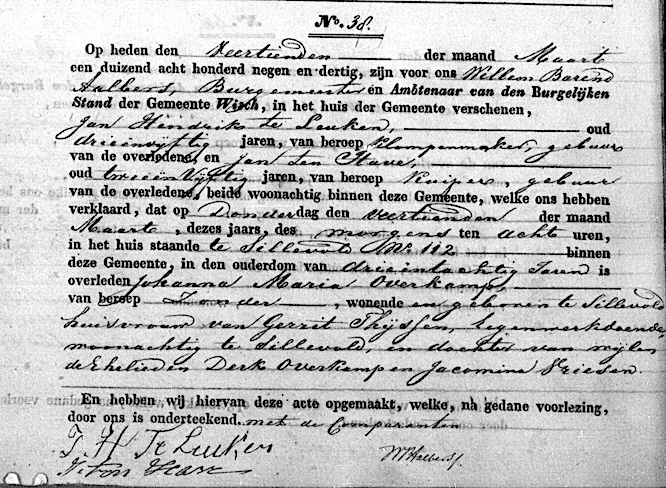 No. 38.
Op heden den Veertienden der maand Maart
een duizend acht honderd negen en dertig, zijn voor ons Willem Barend
Aalbers, Burgemeester en Ambtenaar van den Burgelijken
Stand der Gemeente Wisch, in het huis der Gemeente verschenen,
Jan Hendrik te Leuken, oud
drieenvijftig jaren, van beroep Klompenmaker, gebuur
van de overledene, en Jan ten Have,
oud tweeenvijftig jaren, van beroep Kuiper, gebuur
van de overledene, beide woonachtig binnen deze Gemeente, welke ons hebben
verklaard, dat op Donderdag den veertienden der maand
Maart, dezes jaars, des morgens ten acht uren,
in het huis staande te Sillevold No 112 binnen
deze Gemeente, in den ouderdom van drieentachtig Jaren is
overleden Johanna Maria Overkamp,
van beroep Zonder, wonende en geboren te Sillevold
huisvrouw van Gerrit Thijssen, Legenwerkdoende,
woonachtig te Sillevold, en dochter van wijlen
de Ehelieden Derk Overkamp en Jacomina Vriesen.
En hebben wij hiervan deze acte opgemaakt, welke, na gedane voorlezing,
door ons is onderteekend met de Comparanten
J H Te Luken
J. ten Have
WBAalbers